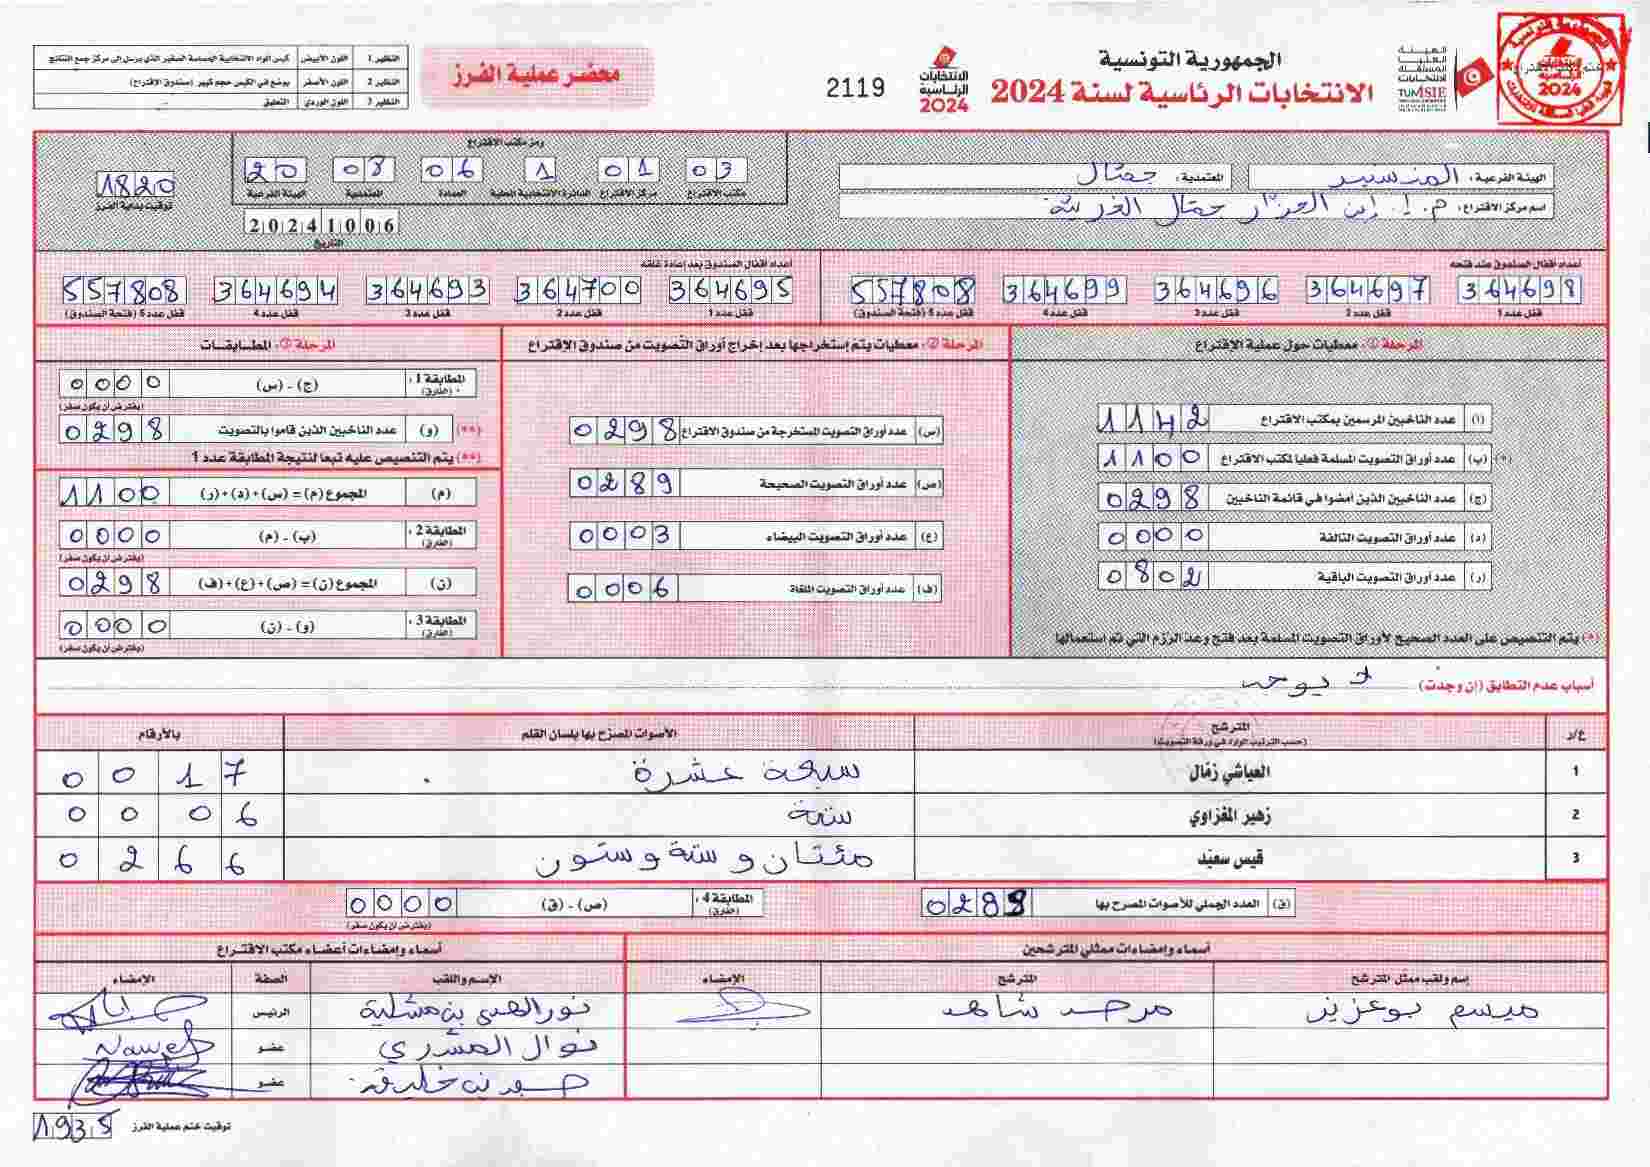 الجمهورية التونسية
الانتخابات الرئاسية لسنة 2024
الهيئة العليا المستقلة للانتخابات
TUNISIE
الانتخابات الرئاسية 2024
2119
محضر عملية الفرز
النظير 1 اللون الأبيض كيس المواد الانتخابية الحساسة الصغير الذي يرسل إلى مركز جمع النتائج
النظير 2 اللون الأصفر يوضع في الكيس حجم كبير (صندوق الاقتراع)
النظير 3 اللون الوردي التعليق
الهيئة الفرعية: المنستير المعتمدية: جمّال
اسم مركز الاقتراع: م.إ. إبن الجزّار جمّال
رمز مكتب الاقتراع
03 01 1 06 08 20
مكتب الاقتراع مركز الاقتراع الدائرة الانتخابية المحلية العمادة المعتمدية الهيئة الفرعية
20241006
التاريخ
1820
توقيت بداية الفرز
أعداد أقفال الصندوق عند فتحه
364698 364697 364696 364699 557808
قفل عدد 1 قفل عدد 2 قفل عدد 3 قفل عدد 4 قفل عدد 5 (فتحة الصندوق)
أعداد أقفال الصندوق بعد إعادة غلقه
364695 364700 364693 364694 557808
قفل عدد 1 قفل عدد 2 قفل عدد 3 قفل عدد 4 قفل عدد 5 (فتحة الصندوق)
المرحلة ①: معطيات حول عملية الإقتراع
(أ) عدد الناخبين المرسمين بمكتب الاقتراع 1142
(*) (ب) عدد أوراق التصويت المسلمة فعليا لمكتب الاقتراع 1100
(ج) عدد الناخبين الذين أمضوا في قائمة الناخبين 0298
(د) عدد أوراق التصويت التالفة 0000
(ر) عدد أوراق التصويت الباقية 0802
(*) يتم التنصيص على العدد الصحيح لأوراق التصويت المسلمة بعد فتح وعد الرزم التي تم استعمالها
المرحلة ②: معطيات يتم إستخراجها بعد إخراج أوراق التصويت من صندوق الإقتراع
(س) عدد أوراق التصويت المستخرجة من صندوق الاقتراع 0298
(ص) عدد أوراق التصويت الصحيحة 0289
(ع) عدد أوراق التصويت البيضاء 0003
(ف) عدد أوراق التصويت الملغاة 0006
المرحلة ③: المطابقات
المطابقة 1: (الفارق) (ج) - (س) 0000
(يفترض أن يكون صفر)
(**) (و) عدد الناخبين الذين قاموا بالتصويت 0298
(**) يتم التنصيص عليه تبعا لنتيجة المطابقة عدد 1
(م) المجموع (م) = (س)+(د)+(ر) 1100
المطابقة 2: (الفارق) (ب) - (م) 0000
(يفترض أن يكون صفر)
(ن) المجموع (ن) = (ص)+(ع)+(ف) 0298
المطابقة 3: (الفارق) (و) - (ن) 0000
(يفترض أن يكون صفر)
أسباب عدم التطابق (إن وجدت): لا يوجد
ع/د المترشح (حسب الترتيب الوارد في ورقة التصويت) الأصوات المصرّح بها بلسان القلم بالأرقام
1 العياشي زمّال سبعة عشرة 0017
2 زهير المغزاوي ستة 0006
3 قيس سعيّد مئتان وستة وستون 0266
(ق) العدد الجملي للأصوات المصرح بها 0289
المطابقة 4: (الفارق) (ص) - (ق) 0000
(يفترض أن يكون صفر)
أسماء وإمضاءات ممثلي المترشحين
إسم ولقب ممثل المترشح المترشح الإمضاء
ميسم بوعزيز
أسماء وإمضاءات أعضاء مكتب الاقتراع
الإسم واللقب الصفة الإمضاء
نور الهدى بن مشلية الرئيس
نوال المشري عضو Nawel
عضو
توقيت ختم عملية الفرز 1935